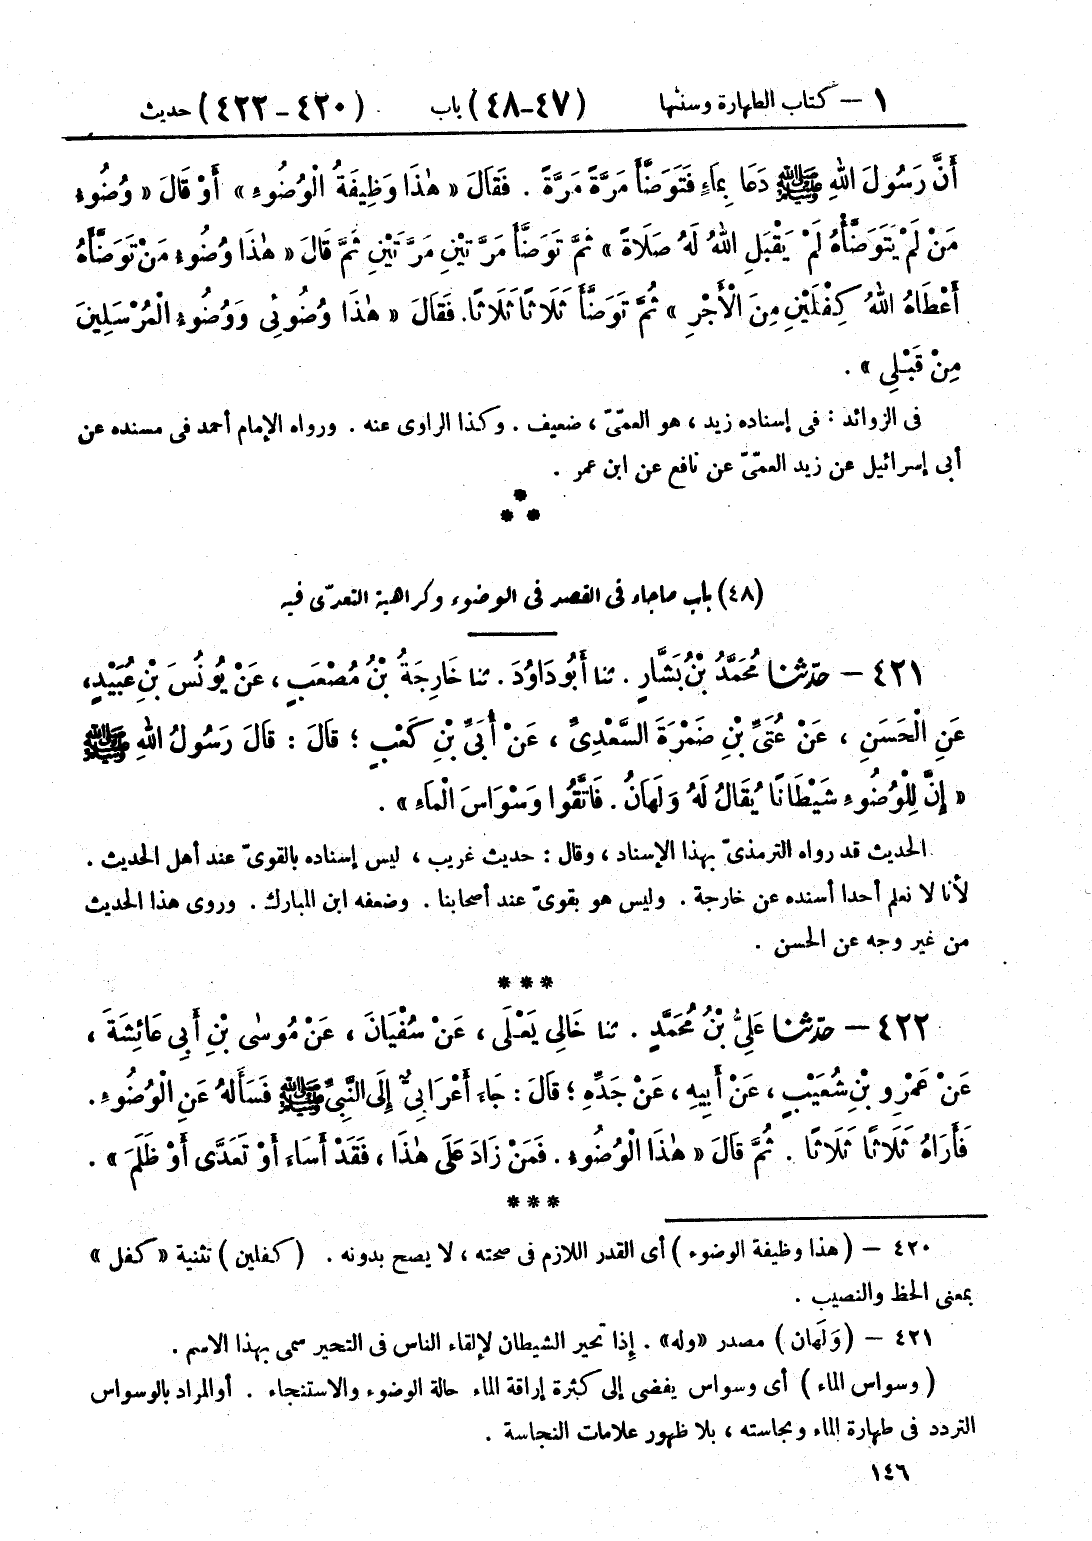 ١ – كتاب الطهارة وسننها (٤٧-٤٨) باب (٤٢٠-٤٢٢) حديث
أَنَّ رَسُولَ اللهِ ﷺ دَعَا بِمَاءٍ فَتَوَضَّأَ مَرَّةً مَرَّةً . فَقَالَ « هٰذَا وَظِيفَةُ الْوُضُوءِ » أَوْ قَالَ « وُضُوءُ
مَنْ لَمْ يَتَوَضَّأْهُ لَمْ يَقْبَلِ اللهُ لَهُ صَلَاةً » ثُمَّ تَوَضَّأَ مَرَّتَيْنِ مَرَّتَيْنِ ثُمَّ قَالَ « هٰذَا وُضُوءُ مَنْ تَوَضَّأَهُ
أَعْطَاهُ اللهُ كِفْلَيْنِ مِنَ الْأَجْرِ » ثُمَّ تَوَضَّأَ ثَلَاثًا ثَلَاثًا. فَقَالَ « هٰذَا وُضُوئِى وَوُضُوءُ الْمُرْسَلِينَ
مِنْ قَبْلِى » .
فى الزوائد : فى إسناده زيد ، هو العمّىّ ، ضعيف . وكذا الراوى عنه . ورواه الإمام أحمد فى مسنده عن
أبى إسرائيل عن زيد العمّىّ عن نافع عن ابن عمر .
*
* *
(٤٨) باب ماجاء فى القصد فى الوضوء وكراهية التعدّى فيه
٤٢١ – حدّثنا مُحَمَّدُ بْنُ بَشَّارٍ . ثنا أَبُو دَاوُدَ . ثنا خَارِجَةُ بْنُ مُصْعَبٍ ، عَنْ يُونُسَ بْنِ عُبَيْدٍ،
عَنِ الْحَسَنِ ، عَنْ عُتَىِّ بْنِ ضَمْرَةَ السَّعْدِىِّ ، عَنْ أُبَىِّ بْنِ كَعْبٍ ؛ قَالَ : قَالَ رَسُولُ اللهِ ﷺ
« إِنَّ لِلْوُضُوءِ شَيْطَانًا يُقَالُ لَهُ وَلَهَانُ . فَاتَّقُوا وَسْوَاسَ الْمَاءِ » .
الحديث قد رواه الترمذىّ بهذا الإسناد ، وقال : حديث غريب ، ليس إسناده بالقوىّ عند أهل الحديث .
لأنا لا نعلم أحدا أسنده عن خارجة . وليس هو بقوىّ عند أصحابنا . وضعفه ابن المبارك . وروى هذا الحديث
من غير وجه عن الحسن .
* * *
٤٢٢ – حدّثنا عَلِىُّ بْنُ مُحَمَّدٍ . ثنا خَالِى يَعْلَى ، عَنْ سُفْيَانَ ، عَنْ مُوسٰى بْنِ أَبِى عَائِشَةَ ،
عَنْ عَمْرِو بْنِ شُعَيْبٍ ، عَنْ أَبِيهِ ، عَنْ جَدِّهِ ؛ قَالَ : جَاءَ أَعْرَابِىٌّ إِلَى النَّبِىِّ ﷺ فَسَأَلَهُ عَنِ الْوُضُوءِ.
فَأَرَاهُ ثَلَاثًا ثَلَاثًا . ثُمَّ قَالَ « هٰذَا الْوُضُوءُ . فَمَنْ زَادَ عَلَى هٰذَا ، فَقَدْ أَسَاءَ أَوْ تَعَدَّى أَوْ ظَلَمَ » .
* * *
٤٢٠ – (هذا وظيفة الوضوء) أى القدر اللازم فى صحته ، لا يصح بدونه . (كفلين) تثنية « كفل »
بمعنى الحظ والنصيب .
٤٢١ – (وَلَهان) مصدر «وله» . إِذا تحير الشيطان لإلقاء الناس فى التحير سمى بهذا الاسم .
(وسواس الماء) أى وسواس يفضى إلى كثرة إراقة الماء حالة الوضوء والاستنجاء . أوالمراد بالوسواس
التردد فى طهارة الماء ونجاسته ، بلا ظهور علامات النجاسة .
١٤٦